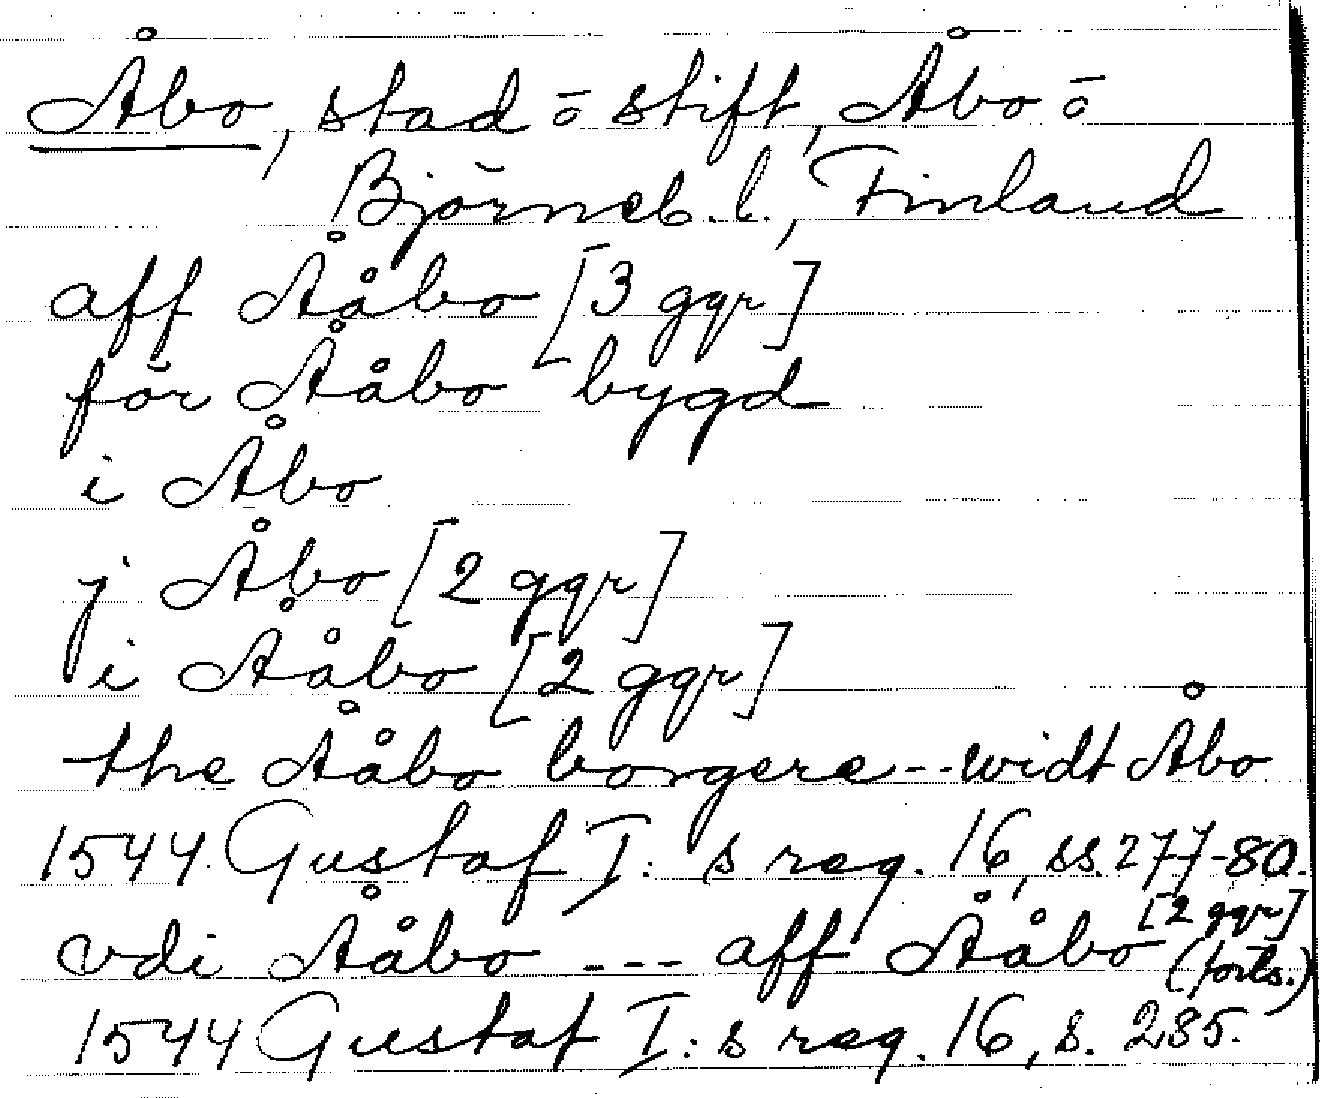 Åbo, stad ō stift, Åbo ō
Björneb. l., Finland
aff Ååbo [3 ggr]
för Ååbo bygd
i Åbo
j Åbo [2 ggr]
i Ååbo [2 ggr]
the Ååbo borgere -- widt Åbo
1544. Gustaf I: s reg. 16, ss. 277-80.
vdi Ååbo --- aff Ååbo [2 ggr]
(forts.)
1544 Gustaf I: s reg. 16, s. 285.